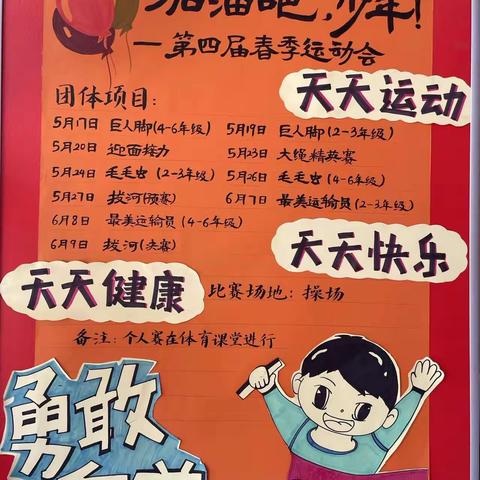 加油吧,少年!
—第四届春季运动会
天天运动
团体项目:
5月17日 巨人脚(4-6年级) 5月19日 巨人脚(2-3年级)
5月20日 迎面接力 5月23日 大绳精英赛
5月24日 毛毛虫(2-3年级) 5月26日 毛毛虫(4-6年级)
5月27日 拔河(预赛) 6月7日 最美运输员(2-3年级)
6月8日 最美运输员(4-6年级)
6月9日 拔河(决赛)
天天快乐
天天健康
比赛场地:操场
备注:个人赛在体育课堂进行
勇敢